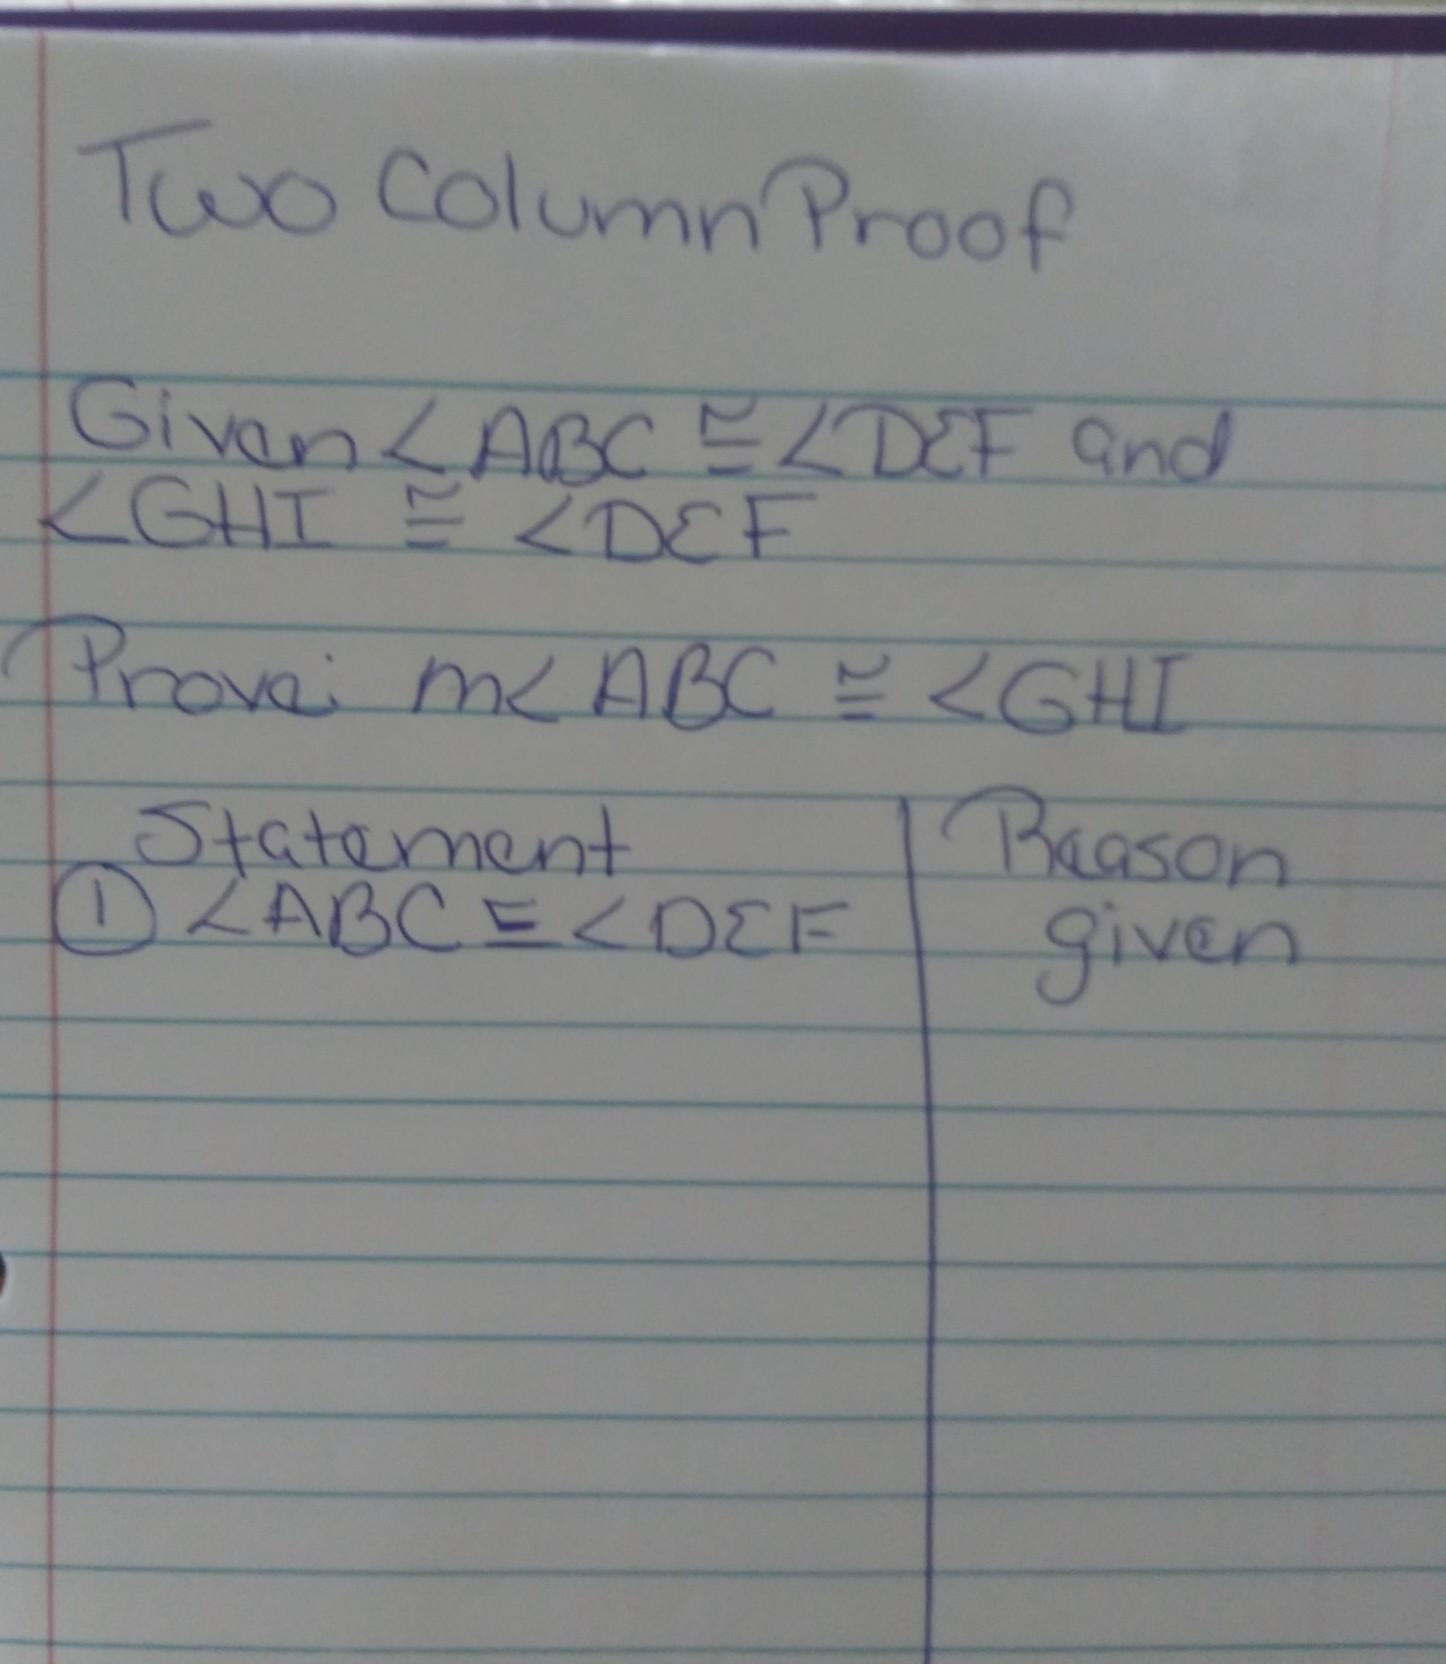 Two Column Proof
Given <ABC ≅ <DEF and
<GHI ≅ <DEF
Prove: m< ABC ≅ <GHI
Statement Reason
① <ABC ≅ <DEF given